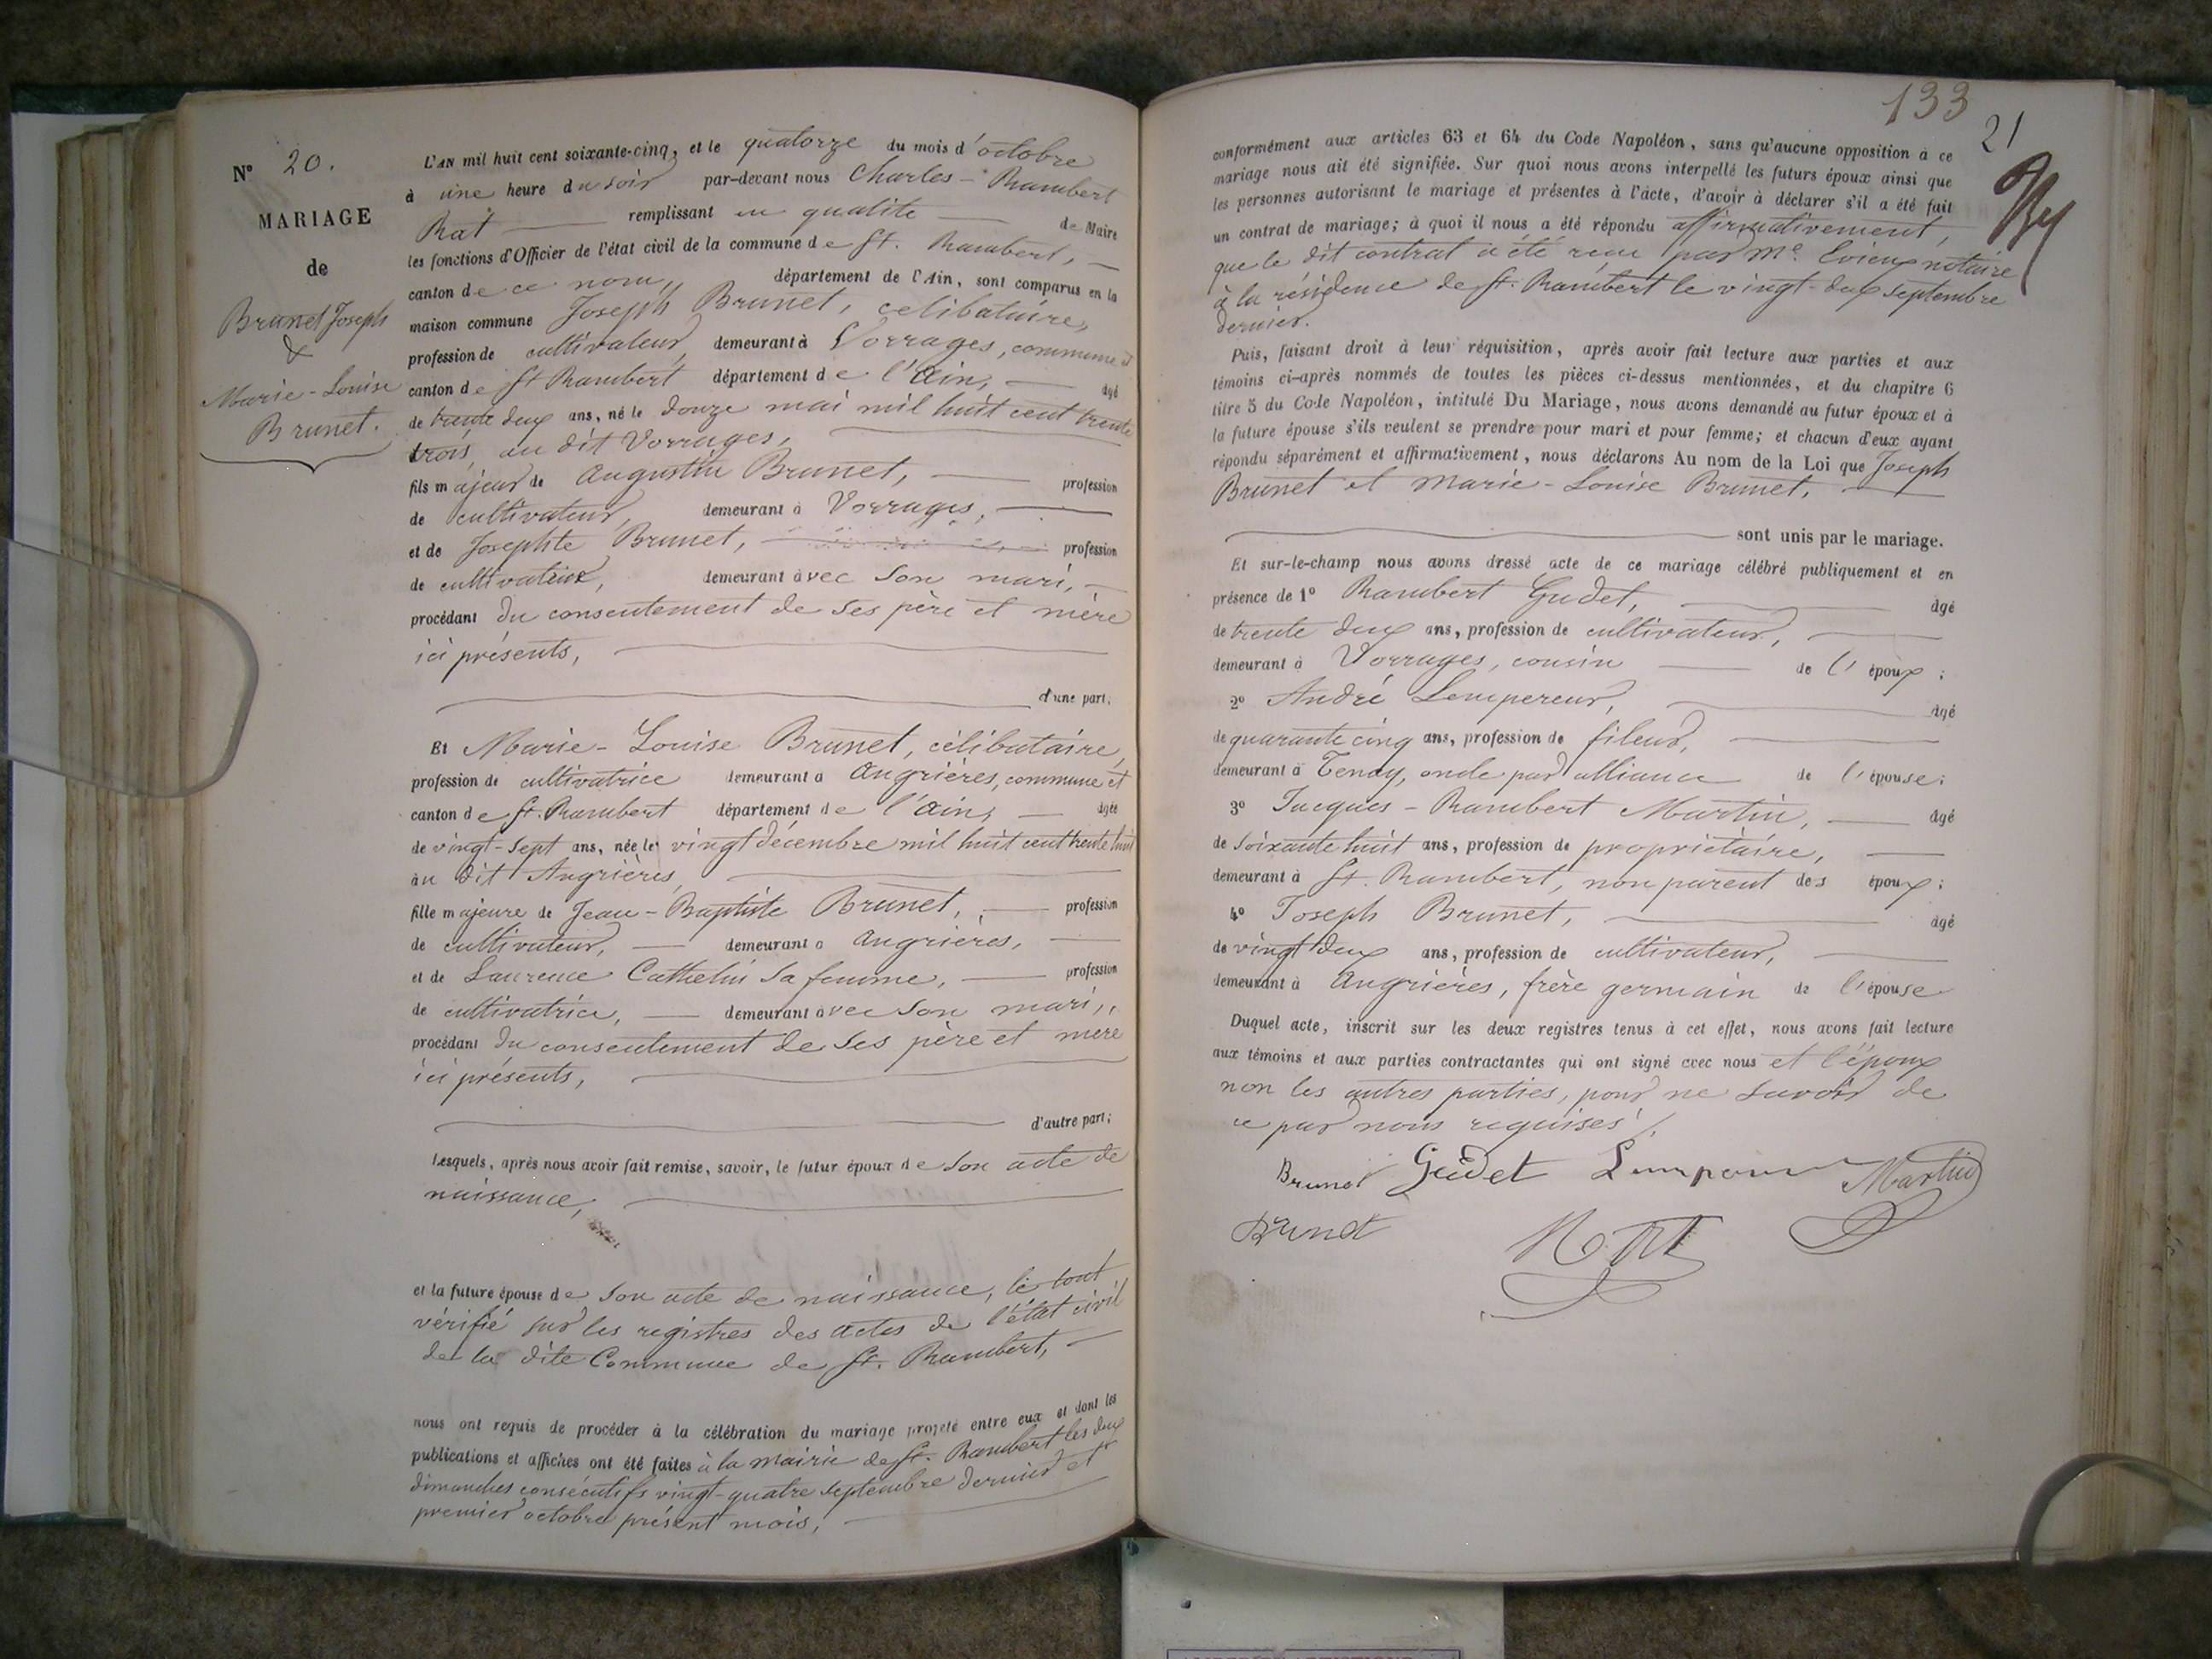 N° 20.
MARIAGE
de
Brunet Joseph
&
Marie-Louise
Brunet.
L'AN mil huit cent soixante-cinq, et le quatorze du mois d'octobre
à une heure du soir par-devant nous Charles-Rambert
Rat remplissant en qualité de Maire
les fonctions d'Officier de l'état civil de la commune de St. Rambert,
canton de ce nom, département de l'Ain, sont comparus en la
maison commune Joseph Brunet, célibataire,
profession de cultivateur, demeurant à Vorrages, commune et
canton de St Rambert département de l'Ain, âgé
de trente deux ans, né le douze mai mil huit cent trente
trois, au dit Vorrages,
fils majeur de Augustin Brunet, profession
de cultivateur, demeurant à Vorrages,
et de Josephte Brunet, profession
de cultivatrice, demeurant avec son mari,
procédant du consentement de ses père et mère
ici présents,
d'une part,
Et Marie-Louise Brunet, célibataire,
profession de cultivatrice demeurant à Angrières, commune et
canton de St. Rambert département de l'Ain, âgée
de vingt-sept ans, née le vingt décembre mil huit cent trente huit
au dit Angrières,
fille majeure de Jean-Baptiste Brunet, profession
de cultivateur, demeurant à Angrières,
et de Laurence Cathelin sa femme, profession
de cultivatrice, demeurant avec son mari,
procédant du consentement de ses père et mère
ici présents,
d'autre part;
Lesquels, après nous avoir fait remise, savoir, le futur époux de son acte de
naissance,
et la future épouse de son acte de naissance, le tout
vérifié sur les registres des actes de l'état civil
de la dite Commune de St. Rambert,
nous ont requis de procéder à la célébration du mariage projeté entre eux et dont les
publications et affiches ont été faites à la mairie de St. Rambert les deux
dimanches consécutifs vingt-quatre septembre dernier et
premier octobre présent mois,
133
21
conformément aux articles 63 et 64 du Code Napoléon, sans qu'aucune opposition à ce
mariage nous ait été signifiée. Sur quoi nous avons interpellé les futurs époux ainsi que
les personnes autorisant le mariage et présentes à l'acte, d'avoir à déclarer s'il a été fait
un contrat de mariage; à quoi il nous a été répondu affirmativement,
que le dit contrat a été reçu par Me. notaire
à la résidence de St. Rambert le vingt-deux septembre
dernier.
Puis, faisant droit à leur réquisition, après avoir fait lecture aux parties et aux
témoins ci-après nommés de toutes les pièces ci-dessus mentionnées, et du chapitre 6
titre 5 du Code Napoléon, intitulé Du Mariage, nous avons demandé au futur époux et à
la future épouse s'ils veulent se prendre pour mari et pour femme; et chacun d'eux ayant
répondu séparément et affirmativement, nous déclarons Au nom de la Loi que Joseph
Brunet et Marie-Louise Brunet,
sont unis par le mariage.
Et sur-le-champ nous avons dressé acte de ce mariage célébré publiquement et en
présence de 1° Rambert Gudet, âgé
de trente deux ans, profession de cultivateur,
demeurant à Vorrages, cousin de l'époux;
2° André Lempereur, âgé
de quarante cinq ans, profession de fileur,
demeurant à Tenay, oncle par alliance de l'épouse;
3° Jacques-Rambert Martin, âgé
de soixante huit ans, profession de propriétaire,
demeurant à St. Rambert, non parent des époux;
4° Joseph Brunet, âgé
de vingt deux ans, profession de cultivateur,
demeurant à Angrières, frère germain de l'épouse
Duquel acte, inscrit sur les deux registres tenus à cet effet, nous avons fait lecture
aux témoins et aux parties contractantes qui ont signé avec nous et l'époux
non les autres parties, pour ne savoir de
ce par nous requises.
Brunet Gudet Martin
Brunet